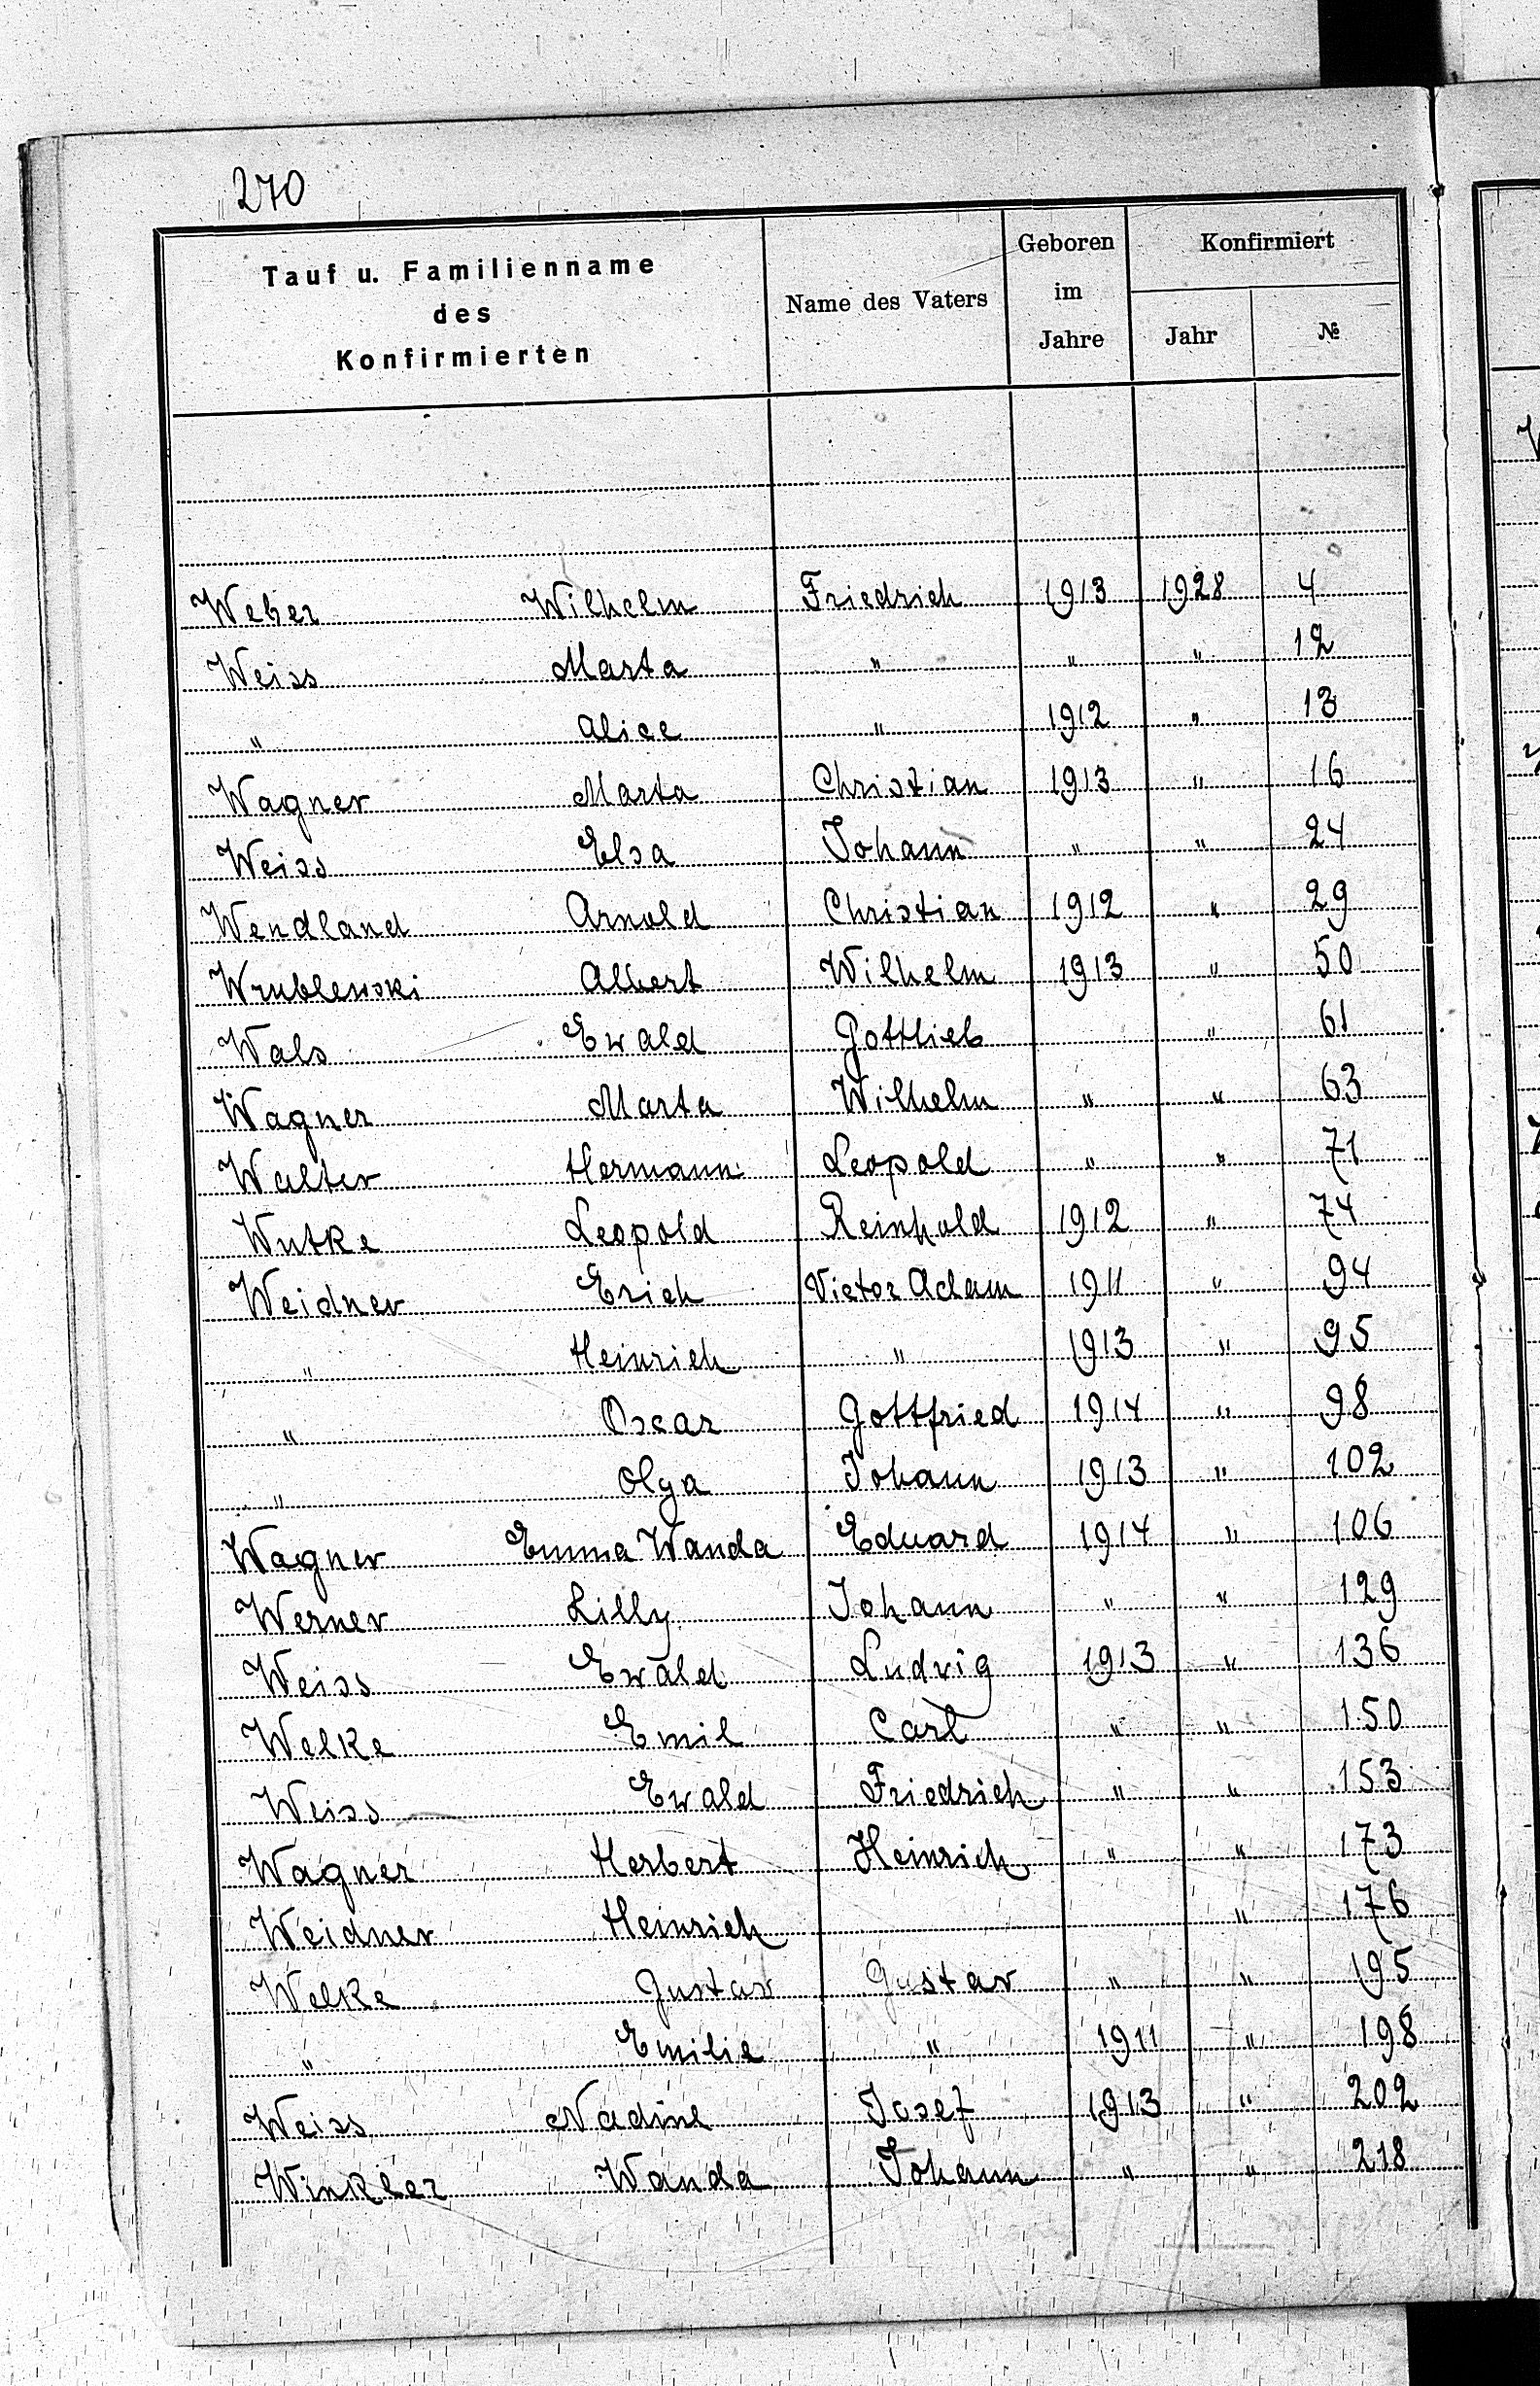 270
Tauf u. Familienname
des
Konfirmierten
Name des Vaters
Geboren
im
Jahre
Konfirmiert
Jahr
№
Weber Wilhelm Friedrich 1913 1928 4
Weiss Marta " " " 12
" Alice " 1912 " 13
Wagner Marta Christian 1913 " 16
Weiss Elsa Johann " " 24
Wendland Arnold Christian 1912 " 29
Wrublewski Albert Wilhelm 1913 " 50
Wals Ewald Gottlieb " 61
Wagner Marta Wilhelm " " 63
Walter Hermann Leopold " " 71
Wutke Leopold Reinhold 1912 " 74
Weidner Erich Victor Adam 1911 " 94
" Heinrich " 1913 " 95
" Oscar Gottfried 1914 " 98
" Olga Johann 1913 " 102
Wagner Emma Wanda Eduard 1914 " 106
Werner Lilly Johann " " 129
Weiss Ewald Ludvig 1913 " 136
Welke Emil Carl " " 150
Weiss Ewald Friedrich " " 153
Wagner Herbert Heinrich " " 173
Weidner Heinrich " 176
Welke Gustav Gustav " " 195
" Emilie " 1911 " 198
Weiss Nadine Josef 1913 " 202
Winkler Wanda Johann " " 218